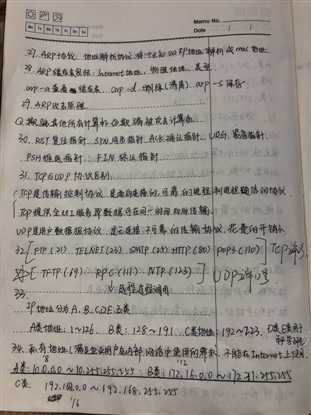 Memo No.
Date
27. ARP协议 地址解析协议 将一个已知的IP地址解析成mac地址
28. ARP缓存表包括: Internet地址, 物理地址, 类型
arp -a 查看 缓存表 arp -d 删除(清真) arp -s 绑定
29. ARP攻击原理
欺骗其他所有计算机
30. RST复位指针 SYN同步指针 ACK确认指针 URG 紧急指针
PSH推送指针 FIN 终止指针
31. TCP与UDP协议区别
TCP是传输控制协议, 是面向连接的, 可靠的进程到进程通信的协议
TCP提供全双工服务即数据可在同一时间双向传输
UDP是用户数据报协议, 是无连接、不可靠的传输协议, 花费的开销小
32 FTP(21) TELNET(23) SMTP(25) HTTP(80) POP3(110) TCP协议
TFTP(69) RPC(111) NTP(123) UDP协议
远程过程调用
33.
IP地址分为A、B、C、D、E五类
A类地址: 1~126 B类: 128~191 C类地址: 192~223
34. 私有地址 只能在Internet上使用
A类: 10.0.0.0 ~ 10.255.255.255 B类: 172.16.0.0 ~ 172.31.255.255
C类: 192.168.0.0 ~ 192.168.255.255
/16